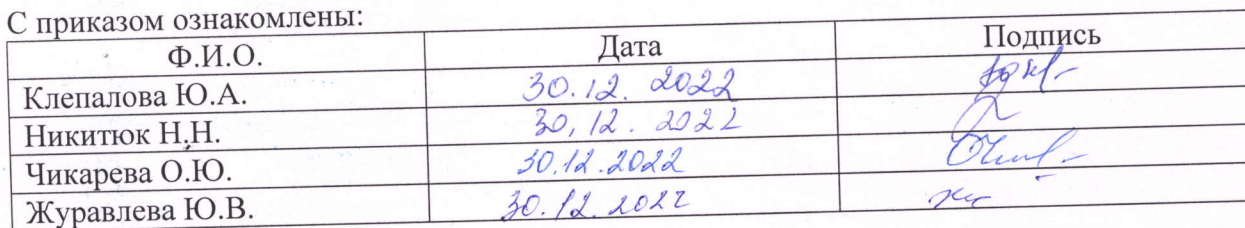 С приказом ознакомлены:
Ф.И.О. Дата Подпись
Клепалова Ю.А. 30.12.2022
Никитюк Н.Н. 30.12.2022
Чикарева О.Ю. 30.12.2022
Журавлева Ю.В. 30.12.2022